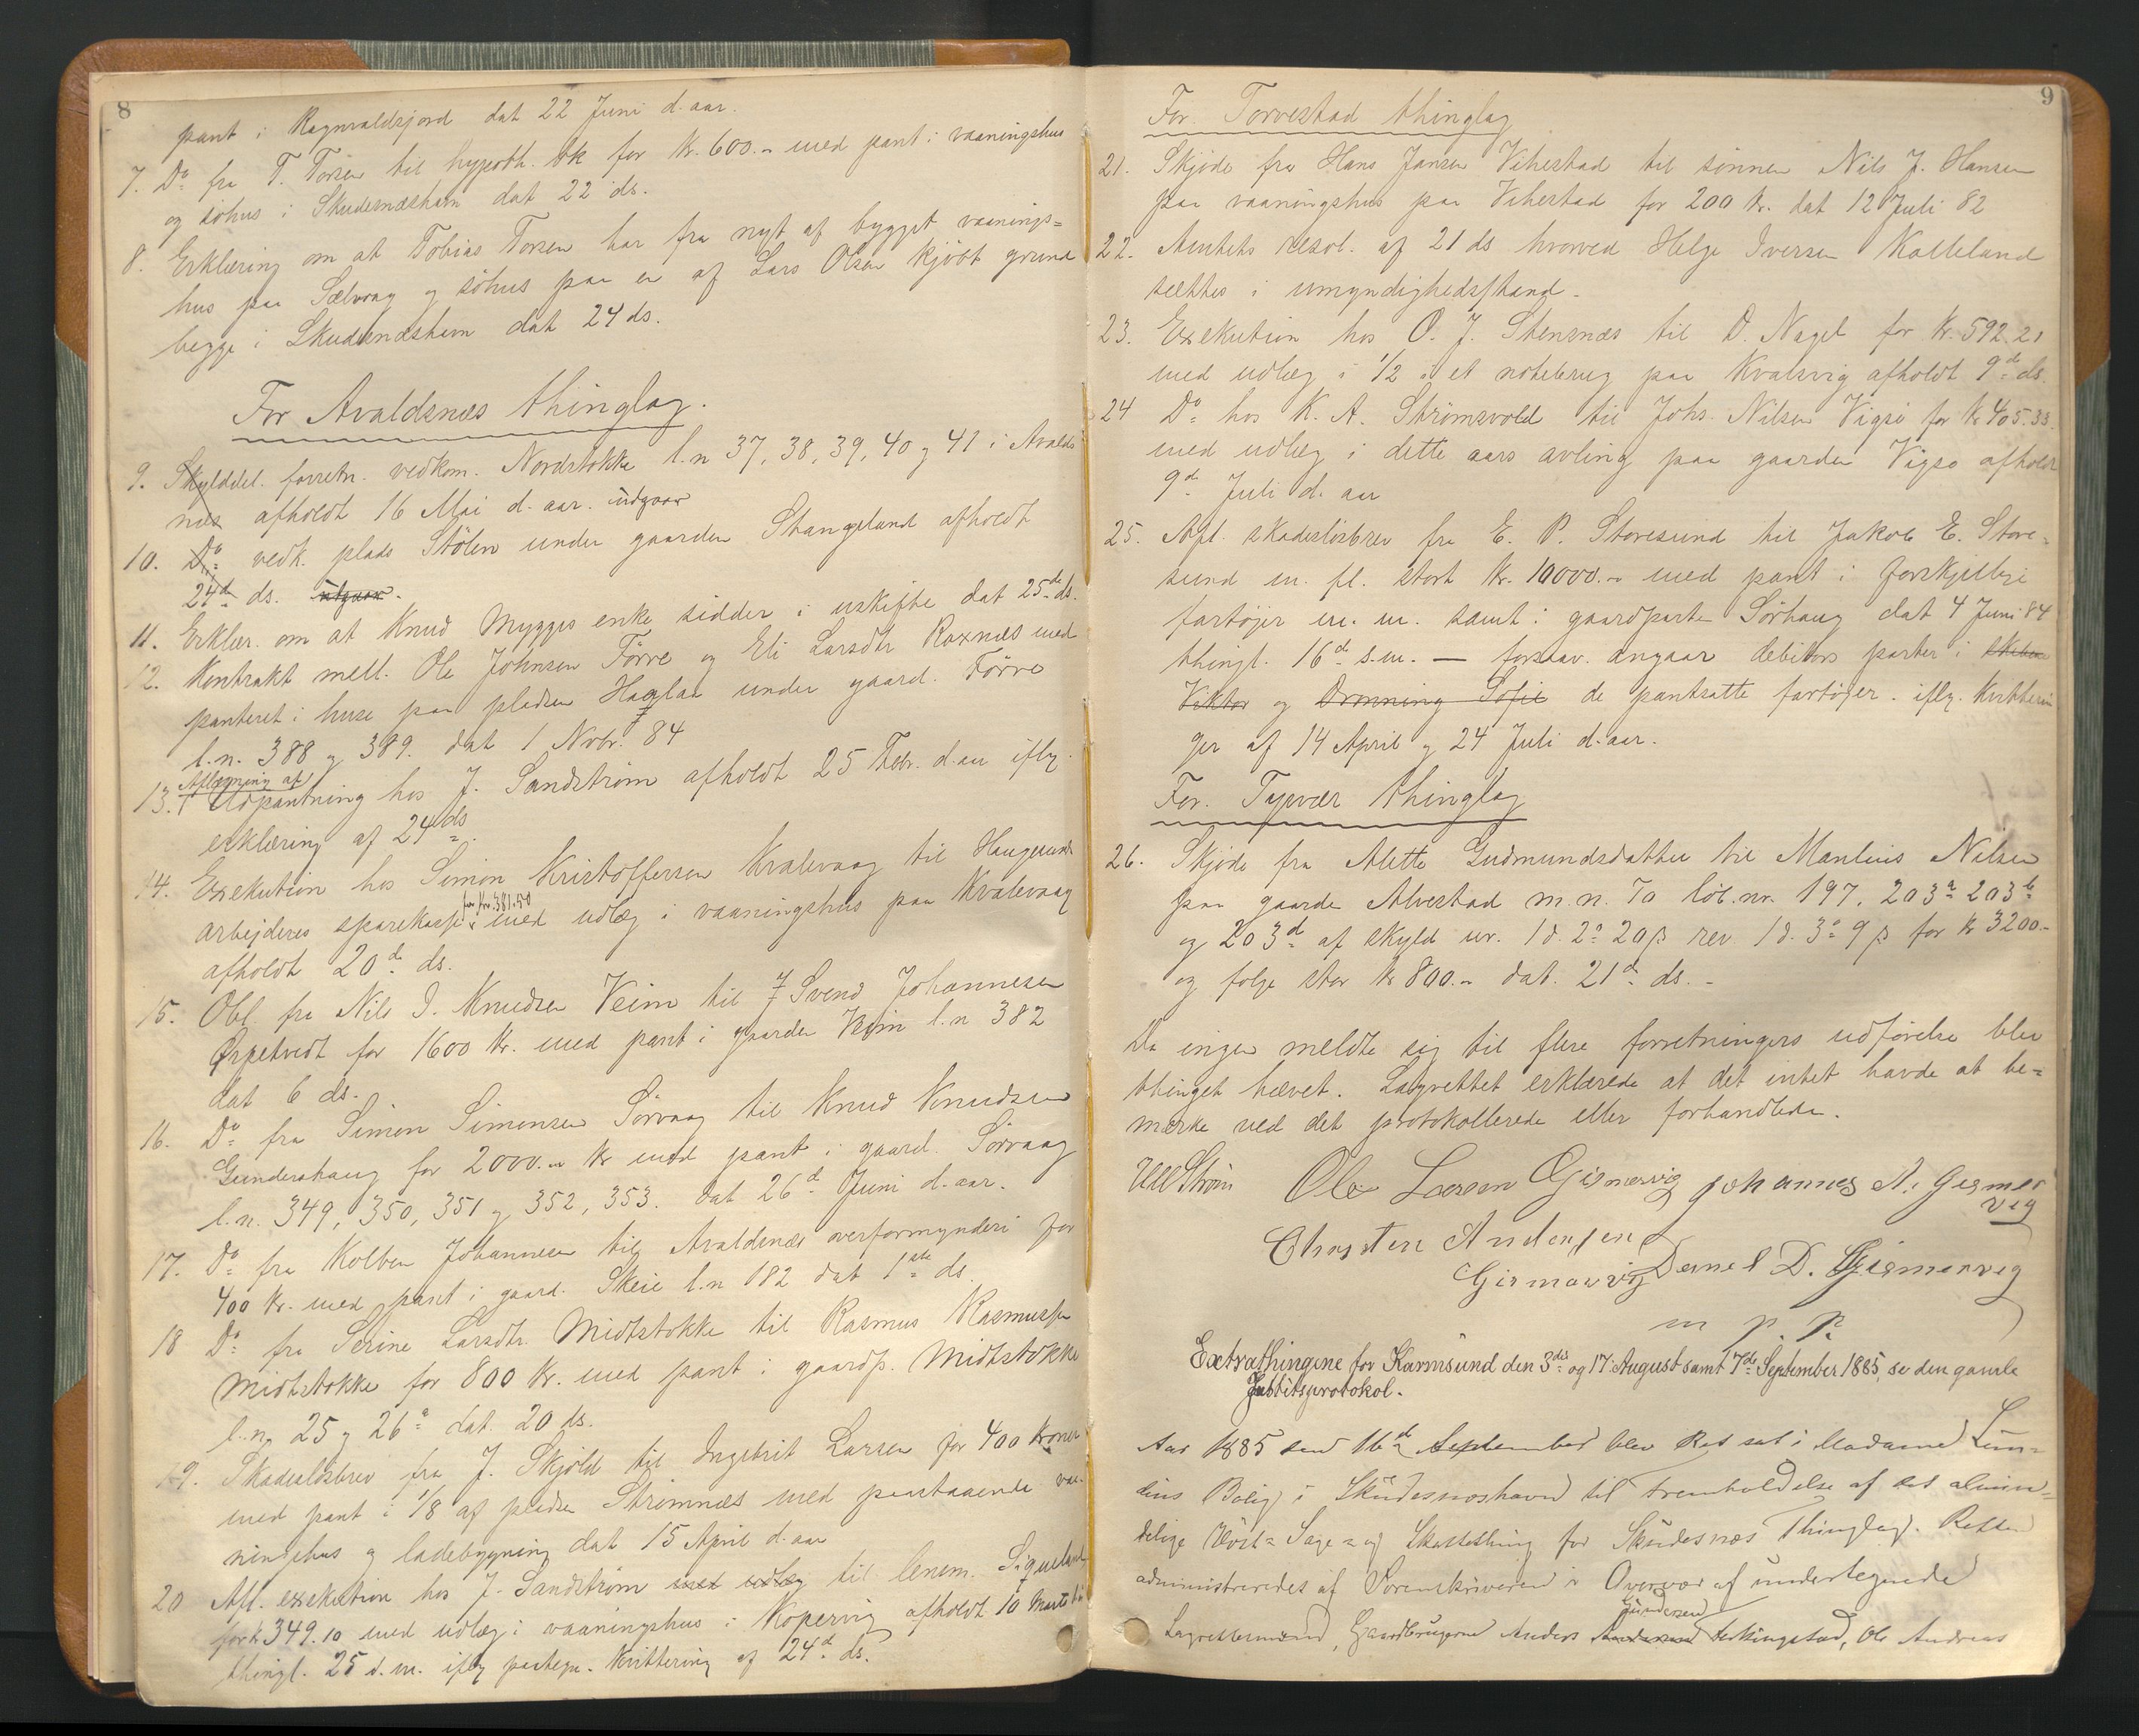 8
pant i Ragnvaldsjord dat 22 Juni d. aar.
7. Do fra T. Torsen til hypoth. bk for Kr. 600.- med pant i vaaningshus
og söhus i Skudesnæshavn dat 22 ds.
8. Erklæring om at Tobias Torsen har fra nyt af bygget vaanings=
hus paa Sælvaag og söhus paa en af Lars Olsen kjöbt grund
begge i Skudesnæshavn dat 24 ds.
For Avaldsnæs thinglag.
9. Skylddel. forretn. vedkom. Nordstokke l.n 37, 38, 39, 40 g 41 i Avalds
næs afholdt 16 Mai d. aar. udgaar
10. Do vedk. plads Stölen under gaarden Stangeland afholdt
24de ds. udgaar.
11. Erklær. om at Knud Mygges enke sidder i uskifte dat 25de ds.
12. Kontrakt mell. Ole Johnsen Förre og Eli Larsdtr Roxnæs med
panteret i huse paa pladsen Haglan under gaard. Förre
l.n. 388 g 389. dat 1 Novbr. 84
13. Aflysning af Udpantning hos J. Sandström afholdt 25 Febr. d. aar iflg.
erklæring af 24 ds.
14. Exekution hos Simon Kristoffersen Kvalevaag til Haugesunds
arbejderes sparekasse for Kr. 381.50 med udlæg i vaaningshus paa Kvalevaag
afholdt 20de ds.
15. Obl. fra Nils I. Knudsen Veim til Svend Johannesen
Ørpetvedt for 1600 Kr. med pant i gaarden Veim l.n 382
dat 6 ds.
16. Do fra Simon Simonsen Sörvaag til Knud Knudsen
Gundershaug for 2000.- Kr med pant i gaard. Sörvaag
l.n. 349, 350, 351 g 352, 353. dat 26de Juni d. aar.
17. Do fra Kolben Johannesen til Avaldsnæs overformynderi for
400 Kr. med pant i gaard. Skeie l.n 182 dat 1ste ds.
18 Do fra Serine Larsdtr. Midtstokke til Rasmus Rasmussen
Midtstokke for 800 Kr. med pant i gaardp. Midtstokke
l.n, 25 g 26a dat. 20 ds.
19. Skadeslösbrev fra J. Skjöld til Ingebrit Larsen for 400 kroner
med pant i 1/8 af pladsen Strömnæs med paastaaende vaa-
ningshus g ladebygning dat 15 April d. aar
20 Afl. exekution hos J. Sandström med udlæg til lensm. Sigueland
for Kr 349.10 med udlæg i vaaningshus i Kopervig afholdt 10 Marts
thingl. 25 s.m. iflg paategn. Kvittering af 24de ds.
9
For Torvestad thinglag
21. Skjöde fra Hans Jansen Vikestad til sönnen Nils J. Hansen
paa vaaningshus paa Vikestad for 200 Kr. dat 12 Juli 82
22. Amtets resol. af 21 ds hvorved Helge Iversen Kolleland
sættes i umyndighedsstand.
23. Exekution hos O. J. Stensnæs til D. Nagel for Kr. 592.21
med udlæg i 1/2 i et notebrug paa Kvalsvig afholdt 9de ds.
24 Do hos K. A. Strömsvold til Johs. Nilsen Vigsö for Kr 405.33
med udlæg i dette aars avling paa gaarden Vigsö afholdt
9de Juli d. aar
25. Afl. skadeslösbrev fra E. P. Storesund til Jakob E. Store-
sund m. fl. stort Kr. 10000.- med pant i forskjellige
fartöjer m. m. samt i gaardparten Sörhaug dat 4 Juni 84
thingl. 16de s.m. — forsaav. angaar debitors parter i
Viktor og Dronning Sofie de pantsatte fartöjer. iflg. kvitterin
ger af 14 April g 24 Juli d. aar.
For Tysvær thinglag
26. Skjöde fra Alette Gudmundsdatter til Manlius Nilsen
paa gaarden Alvestad m.n. 70 löb.nr. 197, 203a 203b
og 203d af skyld ur. 1 d. 2o 20 ß rev 1 d. 3o 9 ß for Kr 3200.-
og fölge stor Kr 800.- dat. 21de ds. -
Da ingen meldte sig til flere forretningers udförelse blev
thinget hævet. Lagrettet erklærede at det intet havde at be=
mærke ved det protokollerede eller forhandlede.
Ström Ole Larsen Gismervig Johannes A. Gismer
vig
Christen Andersen
Gismarvig Daniel D. Gismervig
m p. p.
Extrathingene for Karmsund den 3die og 17. August samt 7de September 1885, se den gamle
Justitsprotokol.
Aar 1885 den 16de September blev Ret sat i Madame Lun-
dins Bolig i Skudesnæshavn til Fremholdelse af det almin=
delige Höst= Sage= og Skattething for Skudesnæs Thinglag. Retten
administreredes af Sorenskriveren i Overvær af undertegnede
Lagrettesmænd, Gaardbrugerne Anders Gundersen Ferkingstad, Ole Andreas